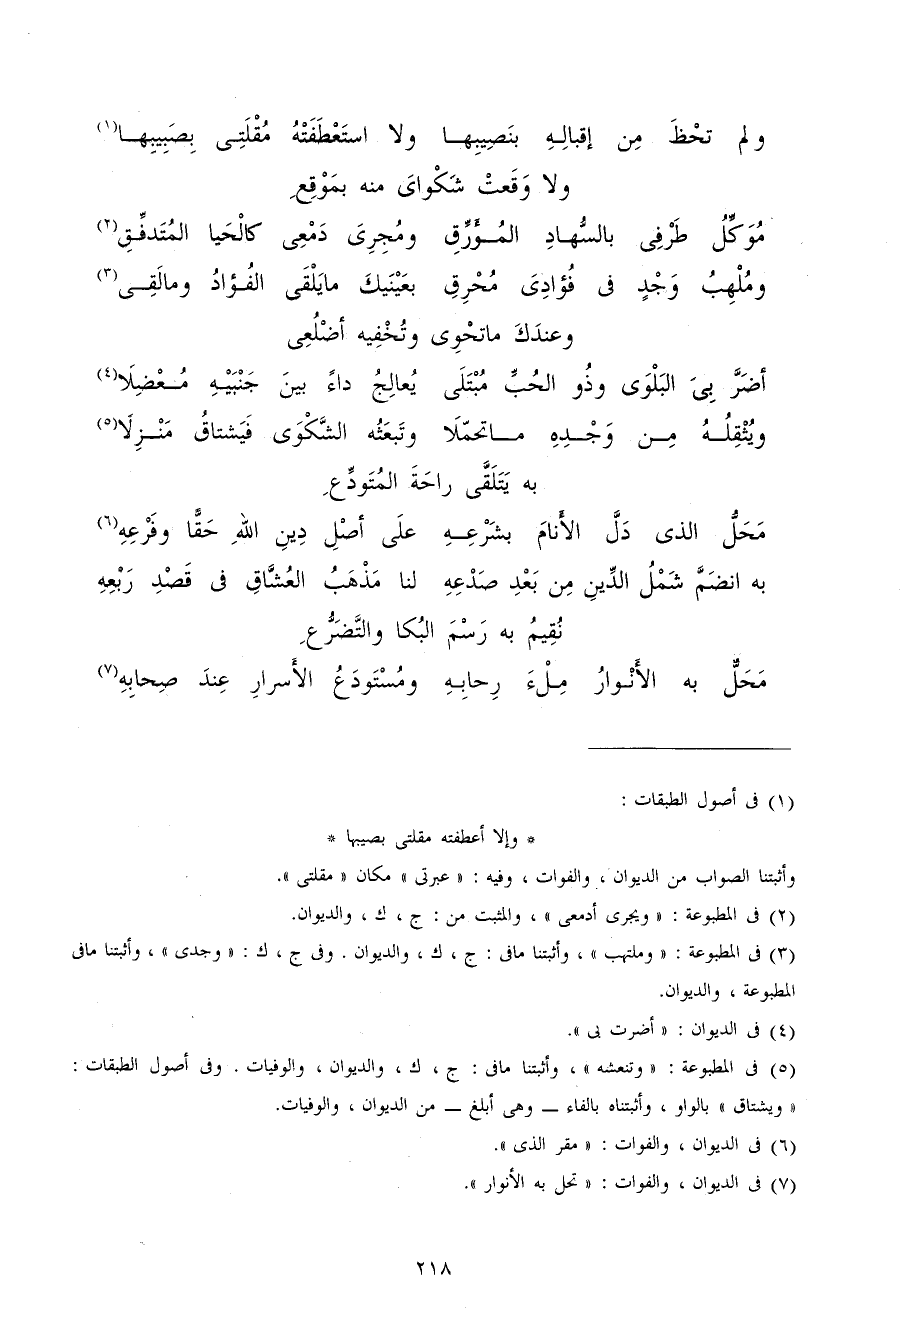 ولم تحْظَ مِن إقبالِهِ بنَصِيبِهـا ولا استَعْطَفَتْهُ مُقْلَتِى بِصَبِيبِهـا(١)
ولا وَقَعتْ شَكْواىَ منه بمَوْقِعِ
مُوَكِّلُ طَرْفِى بالسُّهادِ المُـؤَرِّقِ ومُجرِىَ دَمْعِى كالْحَيا المُتَدفِّـقِ(٢)
ومُلْهِبُ وَجْدٍ فى فُؤادِىَ مُحْرِقِ بعَيْنيكَ مايَلْقَى الفُـؤادُ ومالَقِـى(٣)
وعندَكَ ماتحْوِى وتُخْفِيه أضْلُعِى
أضَرَّ بِىَ البَلْوَى وذُو الحُبِّ مُبْتَلَى يُعالِجُ داءً بينَ جَنْبَيْـهِ مُـعْضِلَا(٤)
ويُثْقِلُـهُ مِـن وَجْـدِهِ مـاتحمّلَا وتَبعَثُه الشَّكْوَى فَيَشتاقُ مَنْـزِلَا(٥)
به يَتَلَقَّى راحَةَ المُتَودِّعِ
مَحَلُّ الذى دَلَّ الأنامَ بشَرْعِـهِ علَى أصْلِ دِينِ اللهِ حَقًّا وفَرْعِهِ(٦)
به انضَمَّ شَمْلُ الدِّينِ مِن بَعْدِ صَدْعِهِ لنا مَذْهَبُ العُشَّاقِ فى قَصْدِ رَبْعِهِ
نُقِيمُ به رَسْمَ البُكا والتَّضَرُّعِ
مَحَلٌّ به الأنْـوارُ مِـلْءَ رِحابِـهِ ومُسْتَودَعُ الأسرارِ عِندَ صِحابِهِ(٧)
(١) فى أصول الطبقات :
* وإلا أعطفته مقلتى بصيبها *
وأثبتنا الصواب من الديوان ، والفوات ، وفيه : « عبرتى » مكان « مقلتى ».
(٢) فى المطبوعة : « ويجرى أدمعى » ، والمثبت من : ج ، ك ، والديوان.
(٣) فى المطبوعة : « وملتهب » ، وأثبتنا مافى : ج ، ك ، والديوان . وفى ج ، ك : « وجدى » ، وأثبتنا مافى
المطبوعة ، والديوان.
(٤) فى الديوان : « أضرت بى ».
(٥) فى المطبوعة : « وتنعشه » ، وأثبتنا مافى : ج ، ك ، والديوان ، والوفيات . وفى أصول الطبقات :
« ويشتاق » بالواو ، وأثبتناه بالفاء ــ وهى أبلغ ــ من الديوان ، والوفيات.
(٦) فى الديوان ، والفوات : « مقر الذى ».
(٧) فى الديوان ، والفوات : « تحل به الأنوار ».
٢١٨